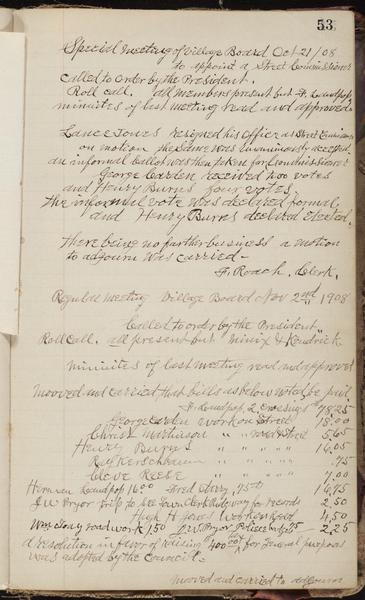 53
Special Meeting of Village Board Oct 21/08
to appoint a Street Commissioner
Called to order by the President.
Roll call. all members present but H. Laudpop,
minuites of last meeting read and approved
Lance Jones resigned his office as Street Commissioner
on motion the same was unanimously accepted
an informal ballot was then taken for Commissioner
George Carden received two votes
and Henry Burns four votes,
the informal vote was declared formal,
and Henry Burns declared elected.
there being no further business a motion
to adjourn was carried-
F. Roach. Clerk.
Regular Meeting Village Board Nov 2nd 1908
Called to order by the President
Roll call. all present but Minix & Kendrick
minuites of last meeting read and approved
mooved and carried that bills as below noted be paid
H. Laudpop 2 crossings $78.25
George Carden work on Street 18.00
Christ " " " 5.65
Henry Burns " " " 16.05
Ray Kerschbaum " " " .75
Cleve Reese " " " 1.00
Herman Laudpop 16.00 Fred .75 16.75
J.W. Pryor trip to see Town Clerk for records 2.50
Hugh H Jones work on road 4.50
Wm road work 1.50 J.W. Pryor Police .75 2.25
a resolution in favor of raising 400.00 for General purposes
was adopted by the Council.
mooved and carried to adjourn